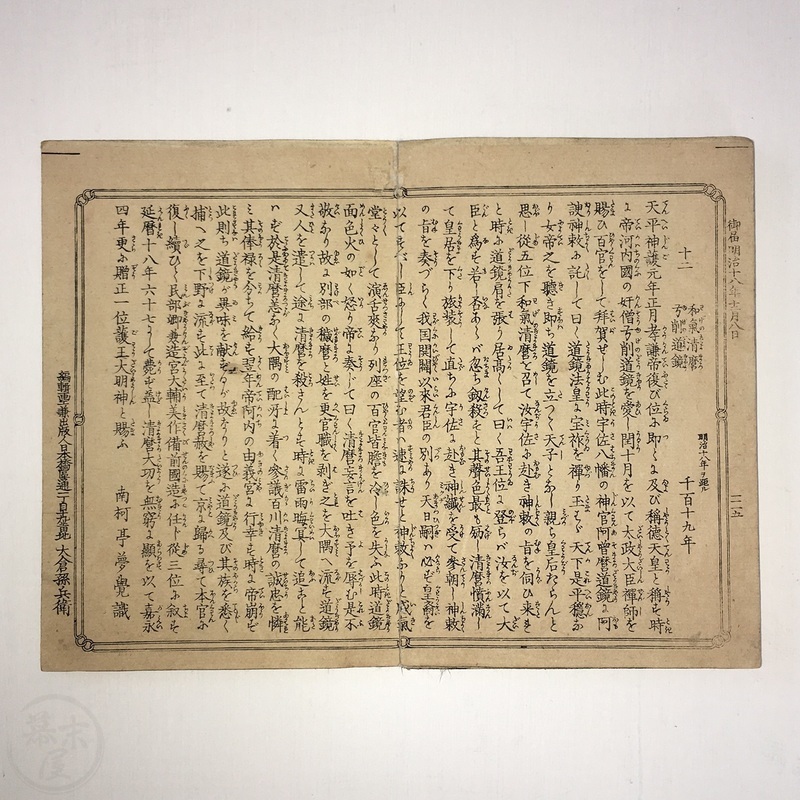 御届明治十八年七月八日
十二
和氣清麿
弓削道鏡
明治十八年ヲ距ル
千百十九年
天平神護元年正月孝謙帝復び位に即くに及び稱徳天皇と稱も時
に帝河内國の奸僧弓削道鏡を愛し閏十月を以て太政大臣禪師を
賜ひ百官をして拜賀せしむ此時宇佐八幡の神官阿曽麿道鏡に阿
諛神敕に託して曰く道鏡法皇に宝祚を禪り玉もゞ天下是平穏に
り女帝之を聽き即ち道鏡を立つく天子とあし親ら皇后たらんと
思し從五位下和氣清麿を召て汝宇佐に赴き神敕の旨を伺ひ來き
と時に道鏡肩を張り居高にして曰く吾王位に登らバ汝を以て大
臣と爲も若し否あらバ忽ち敏殺もと其聲色最も励し清麿憤滿
て皇居を下り旅装して直ちに宇佐に赴き神讖を受て參朝し神敕
の旨を奏づらく我國開闢以來君臣の別あり天日嗣ハ必ず皇裔を
以てもべし臣にして王位を望む者ハ速に誅せと神敕ありと威氣
堂々として演舌來り列座の百官皆膽を冷し色を失ふ此時道鏡
面色火の如く怒り帝に奏じて曰く清麿妄言を吐き予を辱む是不
敬あり故に別部の穢麿と姓を更官職を剥ぎ之を大隅へ流も道鏡
又人を遣して途に清麿を殺さんとも時に雷雨晦冥して追ふこと能
はず於是清麿恙あく大隅の配所に着く參議百川清麿の誠忠を憐
み其俸禄を令ちて給も翌年帝阿内の由義宮に行幸も時に帝崩ず
此則ち道鏡が異味を献もるが故ありと遂に道鏡及び其族を悉く
捕へ之を下野に流も此に至て清麿赦を賜て京に歸る尋て本官に
復し續ひて民部卿兼造宮大輔美作備前國造に任ト從三位に叙も
延暦十八年六十七にして薨ず蓋し清麿大功を無窮に顯を以て嘉永
四年更に贈正一位護王大明神と賜ふ
南柯亭夢覺識
大倉孫兵衛